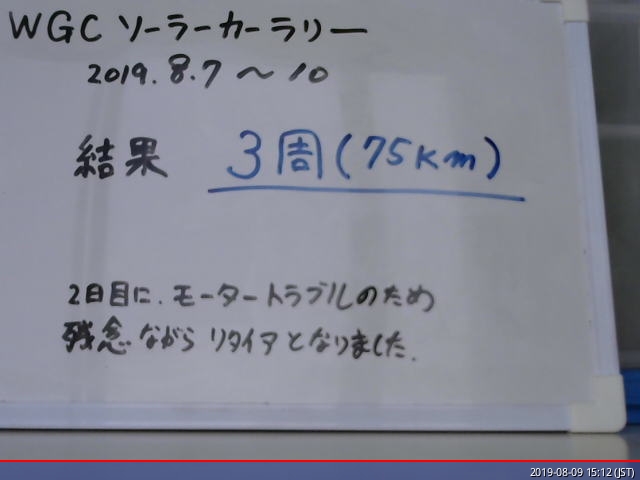 WGC ソーラーカーラリー
2019.8.7 〜 10
結果 3周(75km)
2日目に、モータートラブルのため
残念ながら リタイアとなりました.
2019-08-09 15:12 (JST)